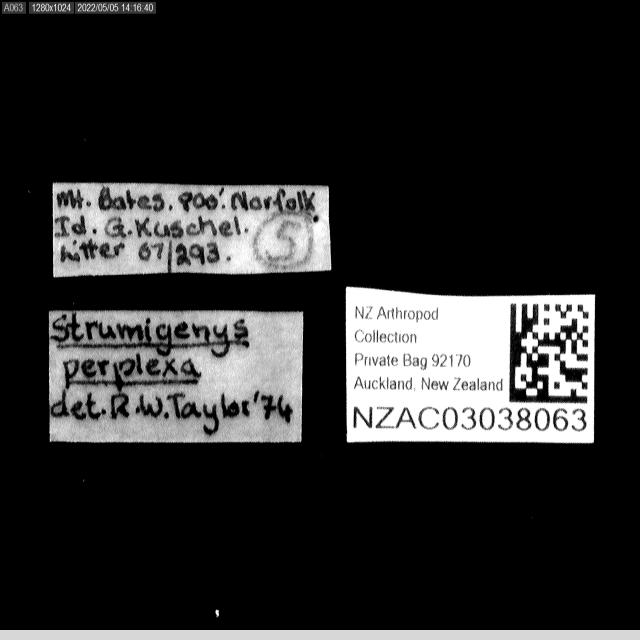 A063 1280x1024 2022/05/05 14:16:40
Mt. Bates. 800'. Norfolk
Id. G. Kuschel.
Litter 67/293. 5
Strumigenys
perplexa
det. R.W. Taylor '74
NZ Arthropod
Collection
Private Bag 92170
Auckland, New Zealand
NZAC03038063